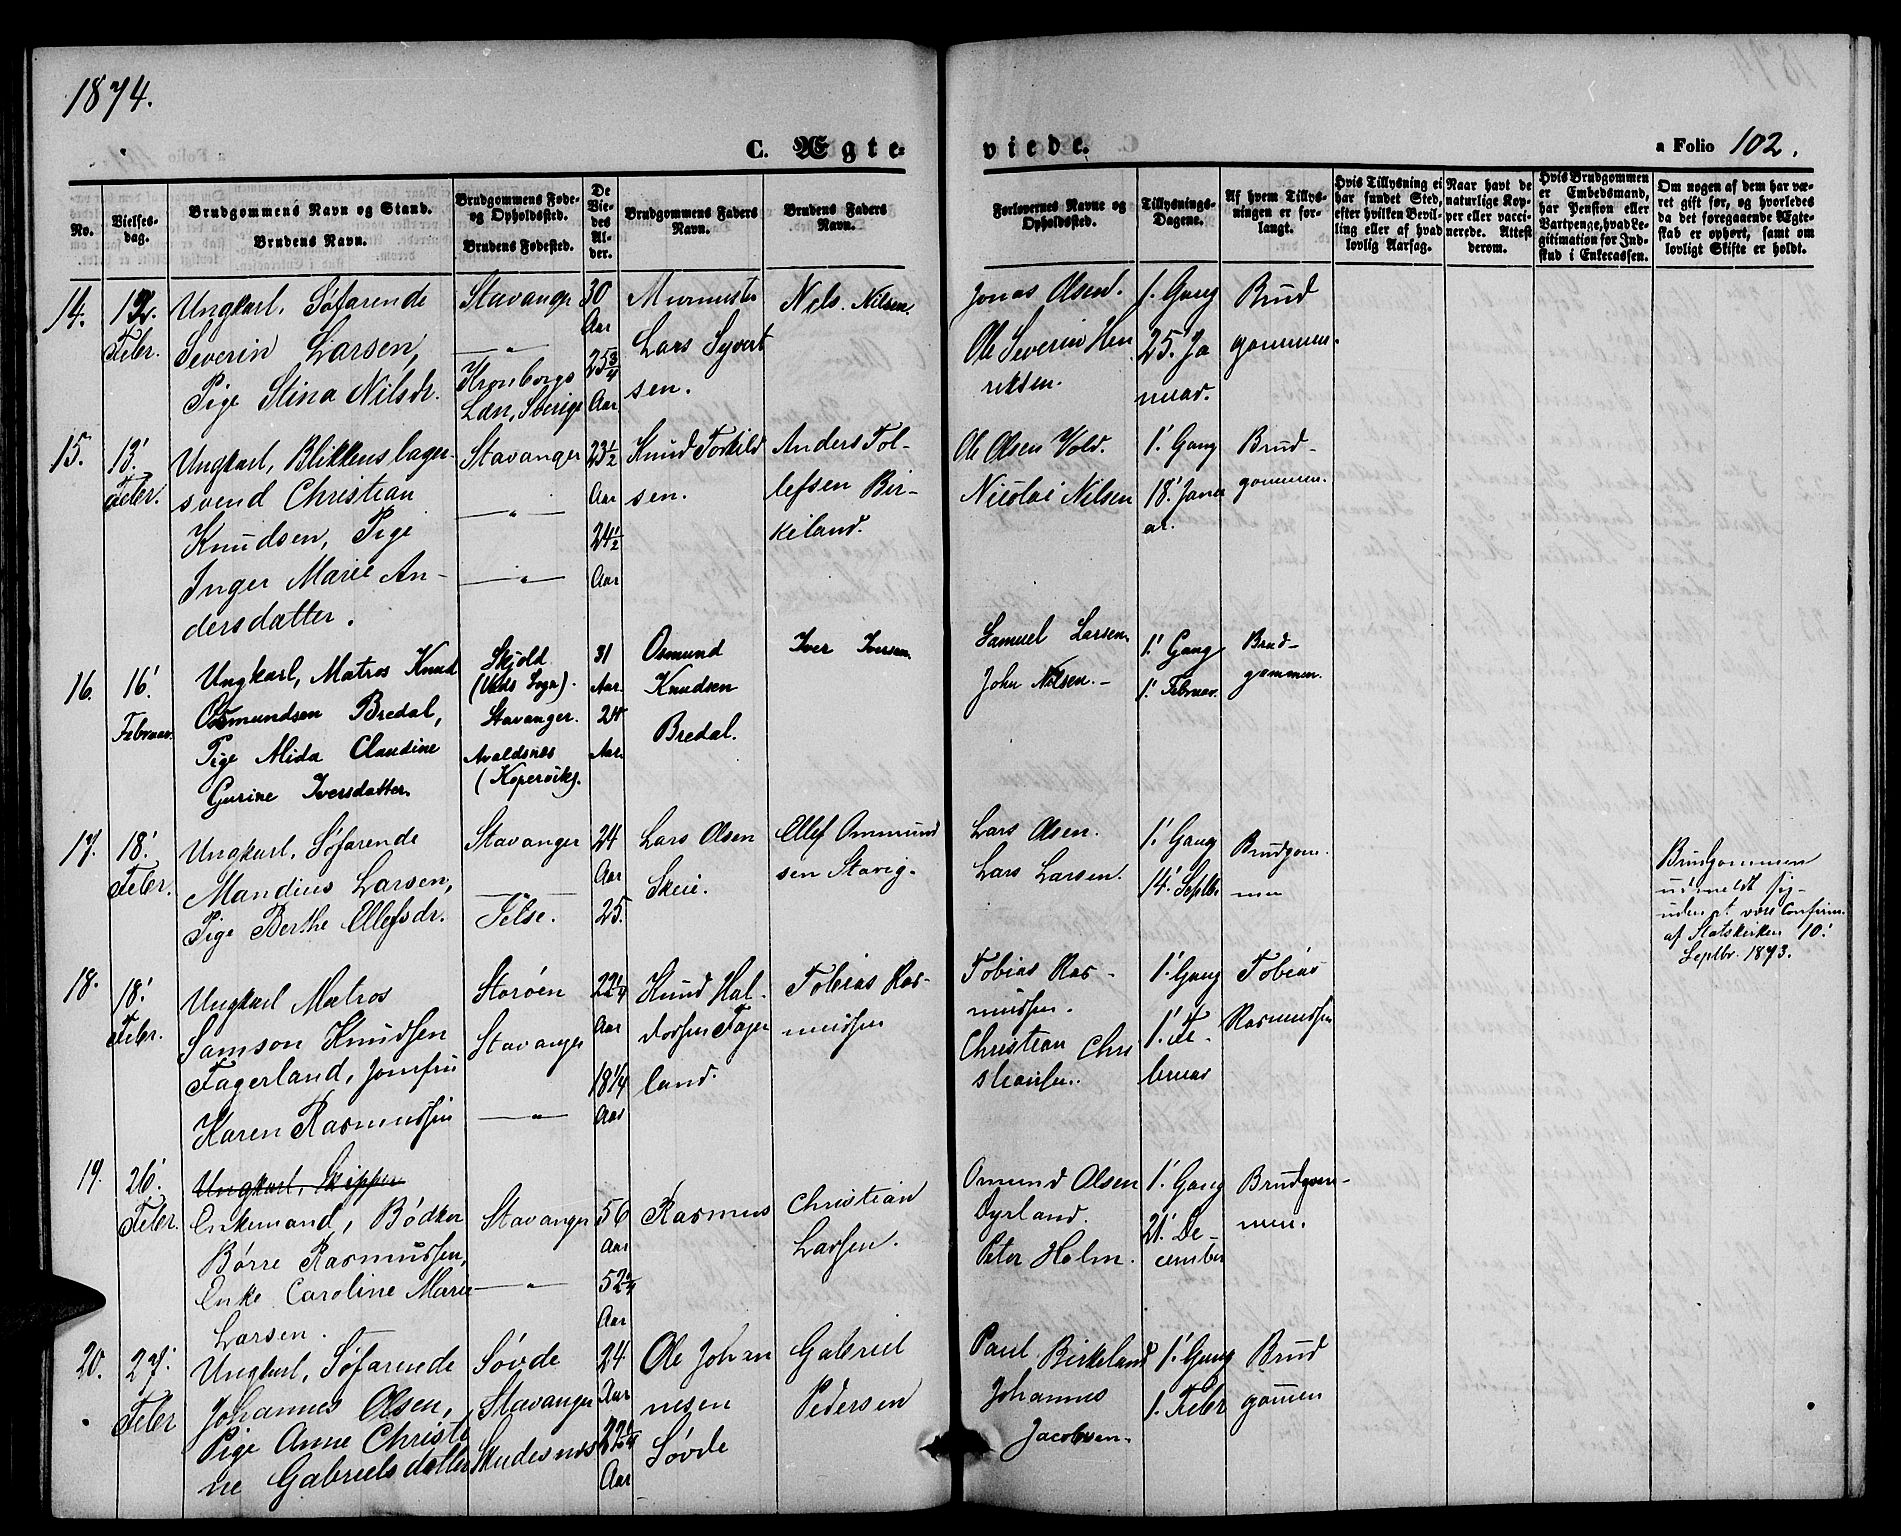 1874.
C. Ægte-
viede.
a Folio 102.
No.
Vielses-
dag.
Brudgommens Navn og Stand.
Brudens Navn.
Brudgommens Føde-
og Opholdssted.
Brudens Fødested.
De
Vie-
des
Al-
der.
Brudgommens Faders
Navn.
Brudens Faders
Navn.
Forlovernes Navne og
Opholdssted.
Tillysnings-
Dagene.
Af hvem Tillys-
ningen er for-
langt.
Hvis Tillysning ei
har fundet Sted,
efter hvilken Bevil-
ling eller af hvad
lovlig Aarsag.
Naar havt de
naturlige Kop-
per eller vacci-
nerede. Attest
derom.
Hvis Brudgommen
er Embedsmand,
har Pension eller
Vartpenge, hvad Le-
gitimation for Ind-
skud i Enkecassen.
Om nogen af dem har væ-
ret gift før, og hvorledes
da det foregaaende Ægte-
skab er ophørt, samt om
lovligt Skifte er holdt.
14.
Febr.
Ungkarl, Søfarende
Severin Larsen,
Pige Stina Nilsdr.
Stavanger
—"—
Kronborgs
Læn, Sverige
30
Aar
25 3/4
Aar
Murmester
Lars Syvert
sen.
Nels. Nilsen.
Jonas Olsen.
Ole Severin Hen
riksen.
1. Gang
25. Ja
nuar.
Brud
gommen.
15.
13'
Febr.
Ungkarl, Blikkenslager-
svend Christian
Knudsen, Pige
Inger Marie An-
dersdatter.
Stavanger
—"—
—"—
23 1/2
Aar
24 1/2
Aar
Knud Torkild
sen.
Anders Tol-
lefsen Bir-
keland.
Ole Olsen Vold.
Nicolai Nilsen
1' Gang
18' Janu
ar.
Brud-
gommen.
16.
16'
Februar.
Ungkarl, Matros Knud
Osmundsen Bredal,
Pige Alida Claudine
Gurine Iversdatter.
Skjold
(Vats Sogn).
Stavanger.
Avaldsnes
(Kopervik).
31
Aar.
24
Aar.
Osmund
Knudsen
Bredal.
Iver Iversen.
Samuel Larsen.
John Nilsen.-
1' Gang
1' Februar.
Brud-
gommen.
17.
18.'
Febr.
Ungkarl, Søfarende
Mandius Larsen,
Pige Berthe Ellefsdr.
Stavanger
Jelse.
24
Aar
25.
Lars Olsen
Skeie.
Ellef Ommund
sen Stavig.
Lars Olsen.
Lars Larsen.
1.' Gang
14.' Septbr
Brudgom
men
Brudgommen
udmeldt sig
uden at være Confirm.
af Statskirken 10.'
Septbr. 1873.
18.
18.'
Febr.
Ungkarl Matros
Samson Knudsen
Fagerland, Jomfru
Karen Rasmussen
Storøen
Stavanger
—"—
22 1/4
Aar
18 1/4
Aar
Knud Hal-
dorsen Fager
land.
Tobias Ras-
mussen
Tobias Ras-
mussen.
Christian Chri
stiansen.
1' Gang
1.' Fe-
bruar
Tobias
Rasmussen
19.
26.'
Febr.
Ungkarl, Skipper
Enkemand, Bødker
Børre Rasmussen,
Enke Caroline Marie
Larsen.
Stavanger
—"—
56
Aar
52 1/4
Aar
Rasmus
Christian
Larsen.
Omund Olsen
Dyrland.
Peter Holm.
1.' Gang
21.' De-
cember
Brudgom-
men.
20.
27.'
Febr
Ungkarl, Søfarende
Johannes Olsen,
Pige Anne Christi
ne Gabrielsdatter
Søvde
Stavanger
Skudesnes
24
Aar
22 1/4
Aar
Ole Johan
nesen
Søvde
Gabriel
Pedersen
Paul Birkeland
Johannes
Jacobsen.
1.' Gang
1. Febr
Brud
gommen